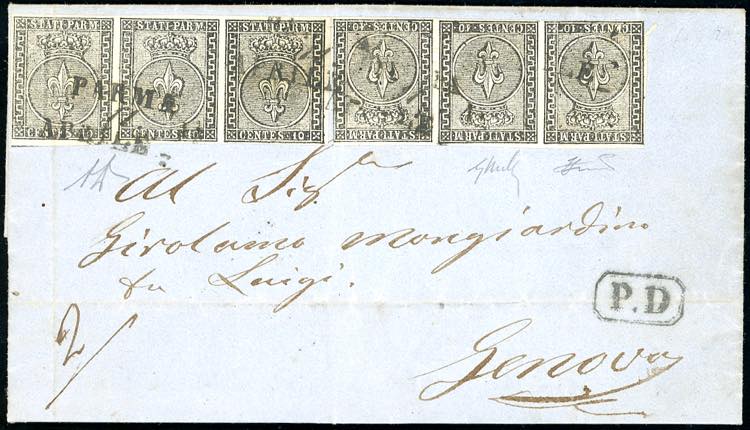 STATI PARM. STATI PARM. STATI PARM. CENTES. 10 CENTES. 10 CENTES. 10
CENTES. 10 CENTES. 10 CENTES. 10 STATI PARM. STATI PARM. STATI PARM.
PARMA
11
APRILE
Al Sigr
Girolamo Mongiardino
fu Luigi.
2/
P.D
Genova